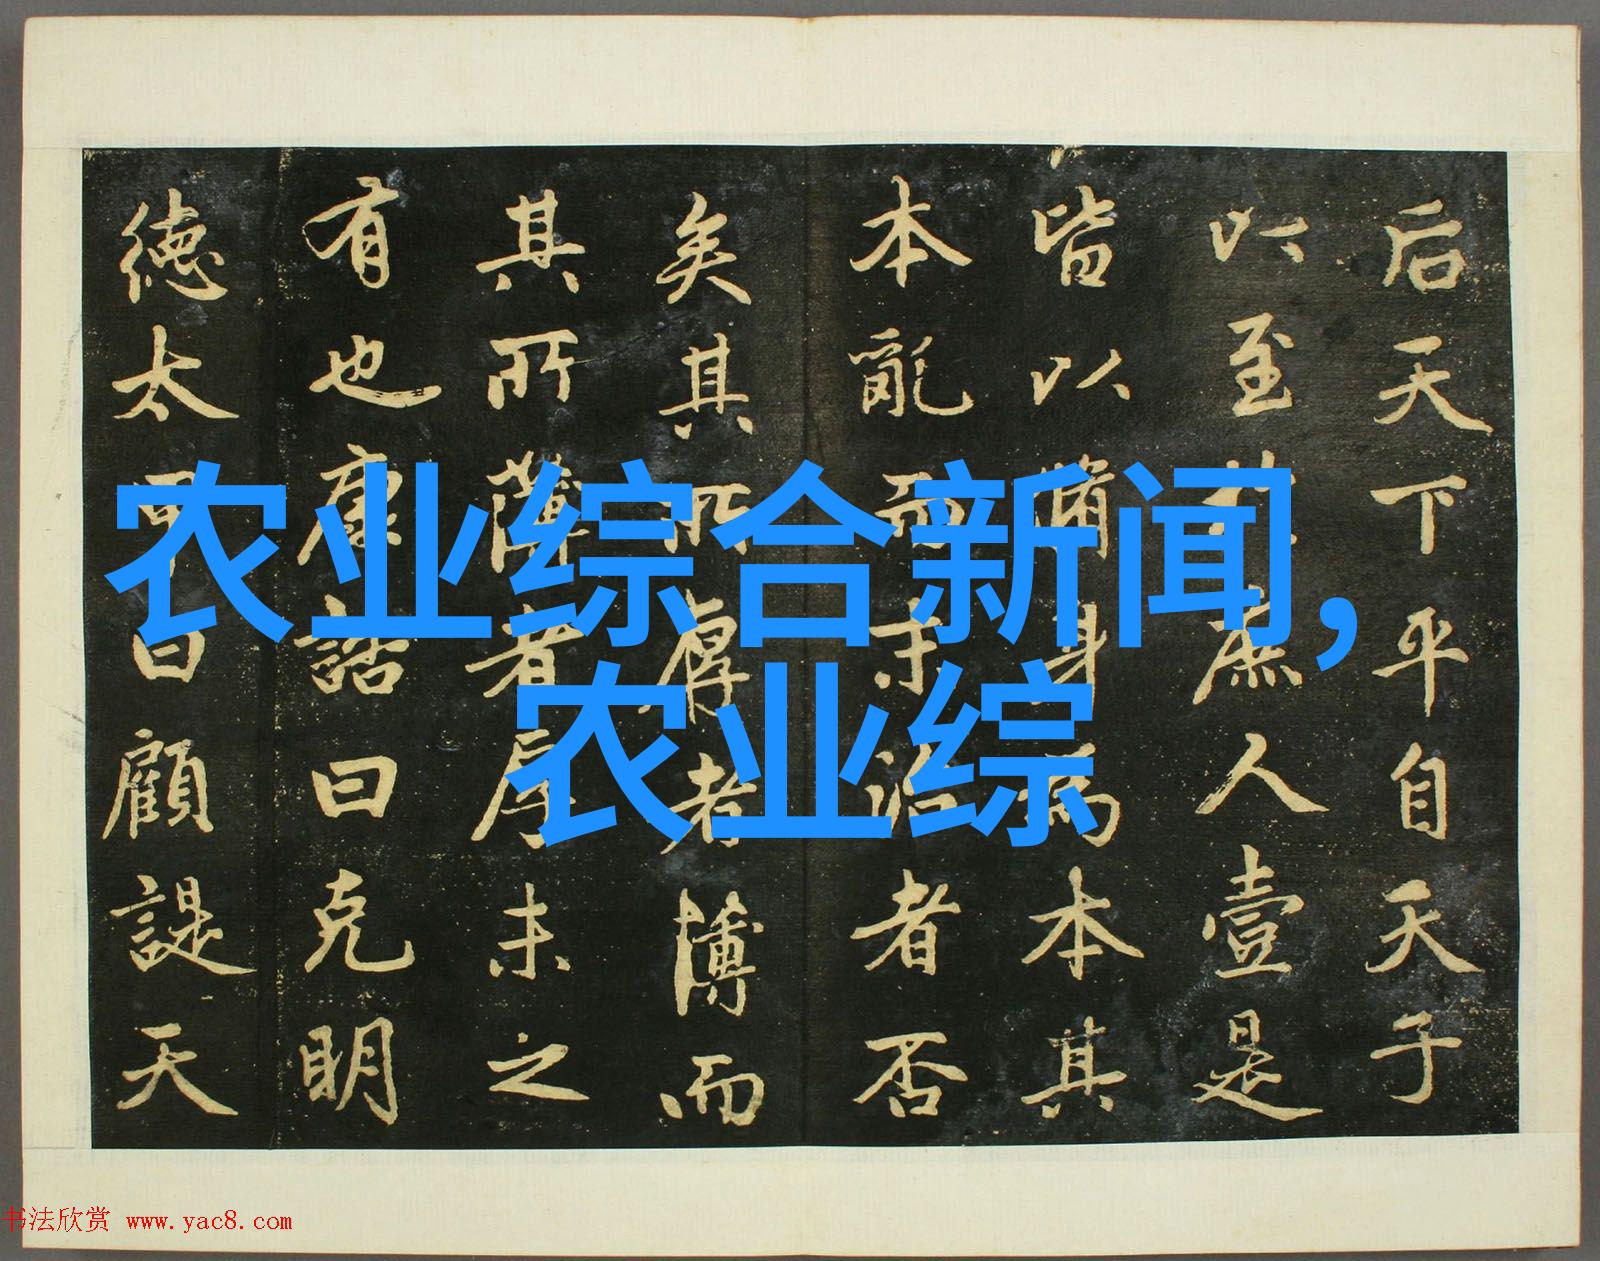 后天下平自天子
以至於庶人壹是
皆以脩身為本其
本亂而末治者否
矣其所厚者薄而
其所薄者厚未之
有也康誥曰克明
德太甲曰顧諟天
农业综合新闻,
农业综
书法欣赏 www.yac8.com